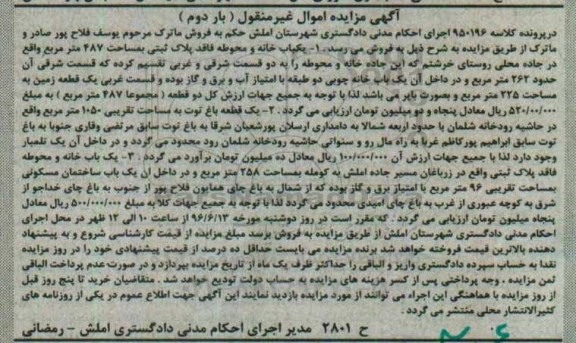 آگهی مزایده اموال غیرمنقول ( بار دوم )
درپرونده کلاسه ۹۵۰۱۹۶ اجرای احکام مدنی دادگستری شهرستان املش حکم به فروش ماترک مرحوم یوسف فلاح پور صادر و
ماترک از طریق مزایده به شرح ذیل به فروش می رسد. ۱- یکباب خانه و محوطه فاقد پلاک ثبتی بمساحت ۴۸۷ متر مربع واقع
در جاده محلی روستای خرشتم که این جاده خانه و محوطه را به دو قسمت شرقی و غربی تقسیم کرده که قسمت شرقی آن
حدود ۲۶۲ متر مربع و در داخل آن یک باب خانه چوبی دو طبقه با امتیاز آب و برق و گاز بوده و قسمت غربی یک قطعه زمین به
مساحت ۲۲۵ متر مربع و بصورت بایر می باشد لذا با توجه به جمیع جهات ارزش کل دو قطعه ( مجموعا ۴۸۷ متر مربع ) به مبلغ
۵۲۰/۰۰۰/۰۰۰ ریال معادل پنجاه و دو میلیون تومان ارزیابی می گردد . ۲- یک قطعه باغ توت به مساحت تقریبی ۱۰۵۰ متر مربع واقع
در حاشیه رودخانه شلمان با حدود اربعه شمالا به دامداری ارسلان پورشعبان شرقا به باغ توت سابق مرتضی وقاری جنوبا به باغ
توت سابق ابراهیم پورکاظم غربا به راه مال رو و سنواتی حاشیه رودخانه شلمان رود محدود می گردد و در داخل آن یک تلمبار
وجود دارد لذا با جمیع جهات ارزش آن ۱۰۰/۰۰۰/۰۰۰ ریال معادل ده میلیون تومان برآورد می گردد . ۳- یک باب خانه و محوطه
فاقد پلاک ثبتی واقع در زرباغان مسیر جاده املش به کومله بمساحت ۲۵۸ متر مربع و در داخل آن یک باب ساختمان مسکونی
بمساحت تقریبی ۹۶ متر مربع با امتیاز برق و گاز بوده که از شمال به باغ چای همایون فلاح پور از جنوب به باغ چای خداجو از
شرق به کوچه عبوری از غرب به باغ چای امیدی محدود می گردد لذا با توجه به جمیع جهات کلا به مبلغ ۵۰۰/۰۰۰/۰۰۰ ریال معادل
پنجاه میلیون تومان ارزیابی می گردد . که مقرر است در روز دوشنبه مورخه ۹۶/۶/۱۳ از ساعت ۱۰ الی ۱۲ ظهر در محل اجرای
احکام مدنی دادگستری شهرستان املش از طریق مزایده به فروش برسد مبلغ مزایده از قیمت کارشناسی شروع و به پیشنهاد
دهنده بالاترین قیمت فروخته خواهد شد برنده مزایده می بایست حداقل ده درصد از قیمت پیشنهادی خود را در روز مزایده
نقدا به حساب سپرده دادگستری واریز و الباقی را حداکثر ظرف یک ماه از تاریخ مزایده بپردازد و در صورت عدم پرداخت الباقی
ثمن مزایده ، وجه پرداختی پس از کسر هزینه های مزایده به حساب دولت تودیع خواهد شد . متقاضیان خرید تا پنج روز قبل
از روز مزایده با هماهنگی این اجراء می توانند از مورد مزایده بازدید نمایند این آگهی جهت اطلاع عموم در یکی از روزنامه های
کثیرالانتشار محلی منتشر می گردد .
ح ۲۸۰۱ مدیر اجرای احکام مدنی دادگستری املش - رمضانی